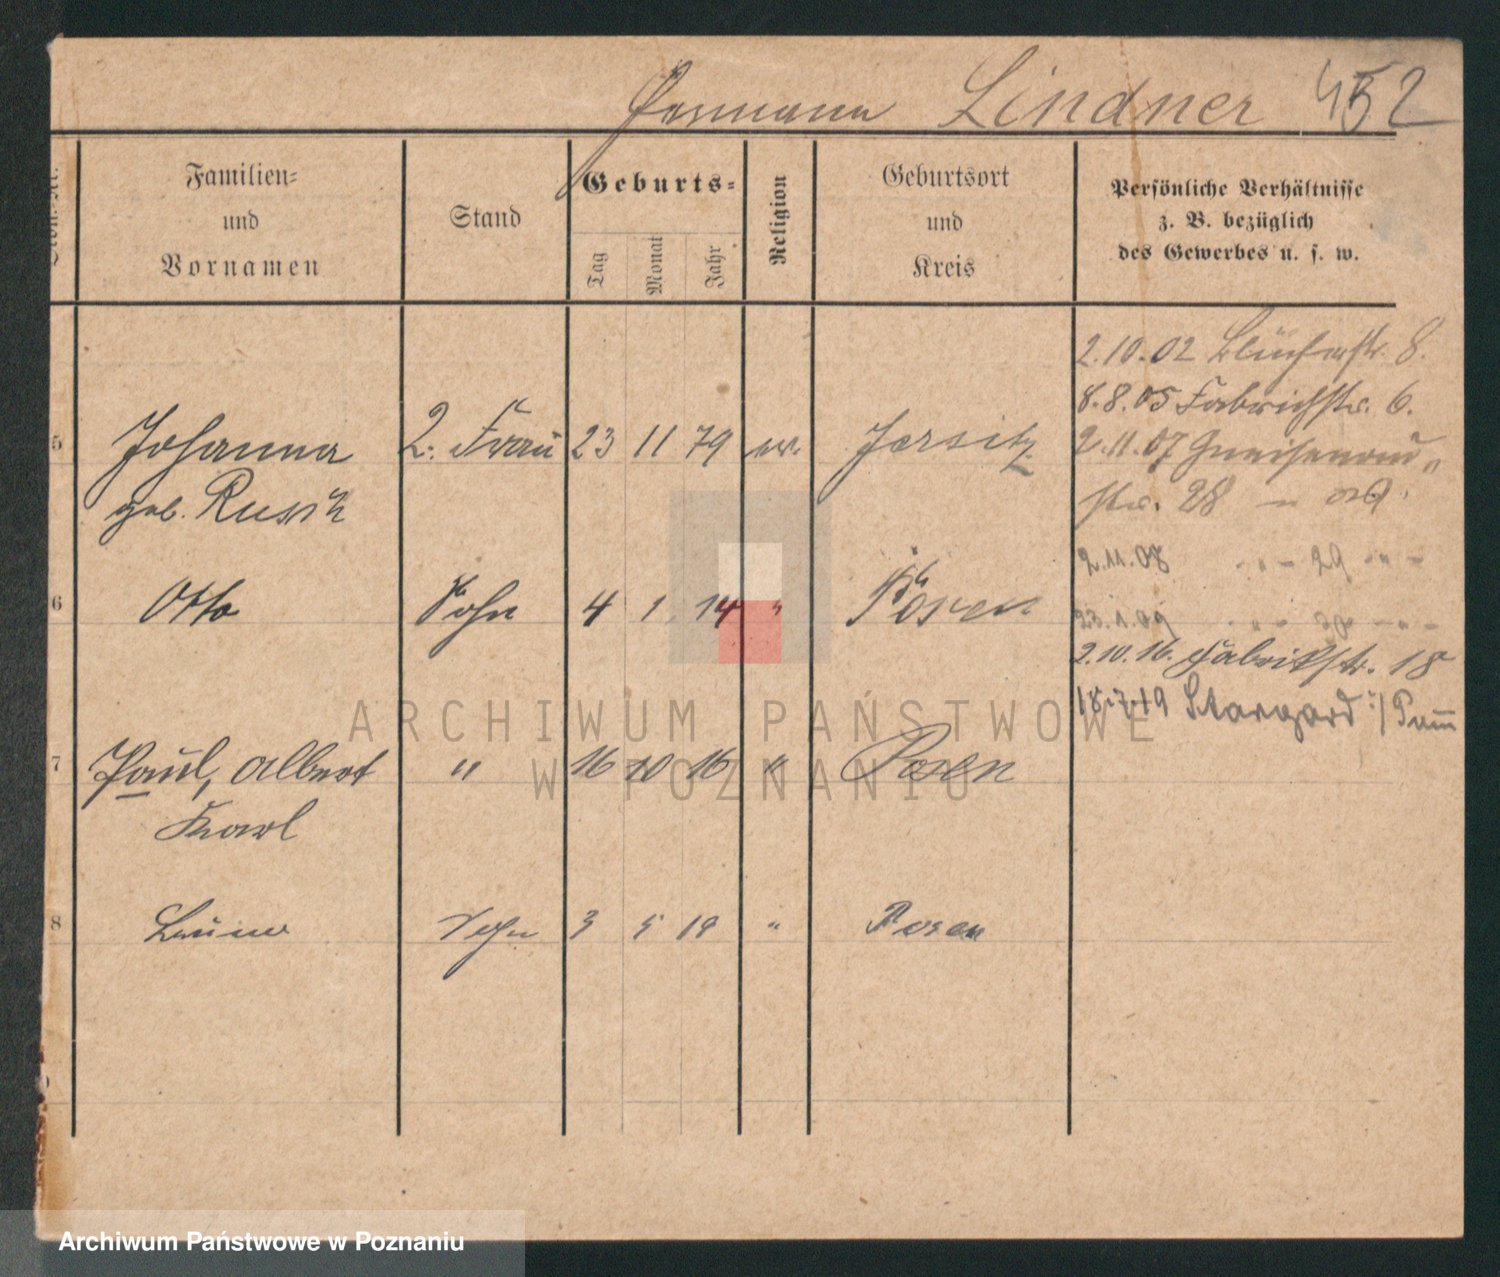 Hermann Lindner 452
Familien=
und
Vornamen
Stand
Geburts=
Tag
Monat
Jahr
Religion
Geburtsort
und
Kreis
Persönliche Verhältnisse
z. B. bezüglich
des Gewerbes u. s. w.
2.10.02 Blücherstr. 8.
8.8.05 Fabrikstr. 6.
5 Johanna 2. Frau 23 11 79 ev. Jersitz
2.11.07 Gneisenau
geb.
str. 28
2.11.08 " 29 "
6 Otto Sohn 4 1 14 " Posen
23.1.09
2.10.16. Fabrikstr. 18
18.7.19 Stargard i/Pom
ARCHIWUM PAŃSTWOWE
W POZNANIU
7 Paul, Albert " 16 10 16 " Posen
Karl
8 Bruno Sohn 3 5 19 " Posen
Archiwum Państwowe w Poznaniu